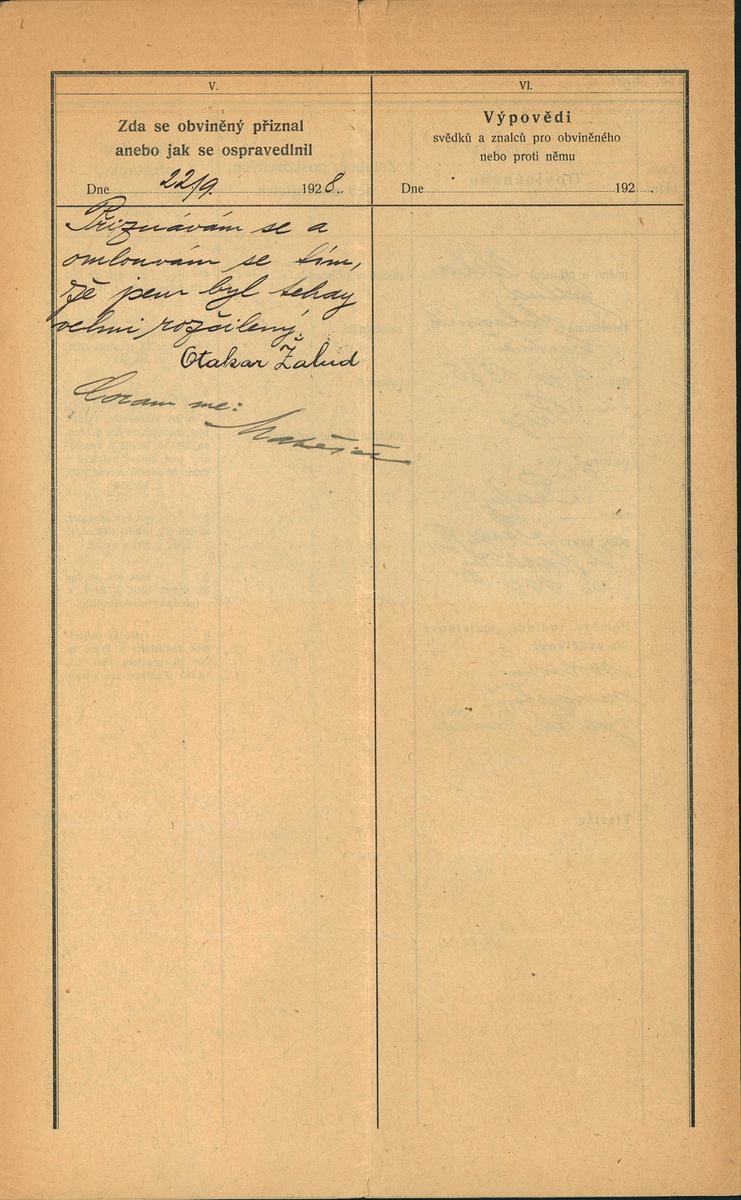 V.
Zda se obviněný přiznal
anebo jak se ospravedlnil
Dne 22/9. 1928.
Přiznávám se a
omlouvám se tím,
že jsem byl tehdy
velmi rozčilený.
Otakar Žalud
Coram me:
VI.
Výpovědi
svědků a znalců pro obviněného
nebo proti němu
Dne 192